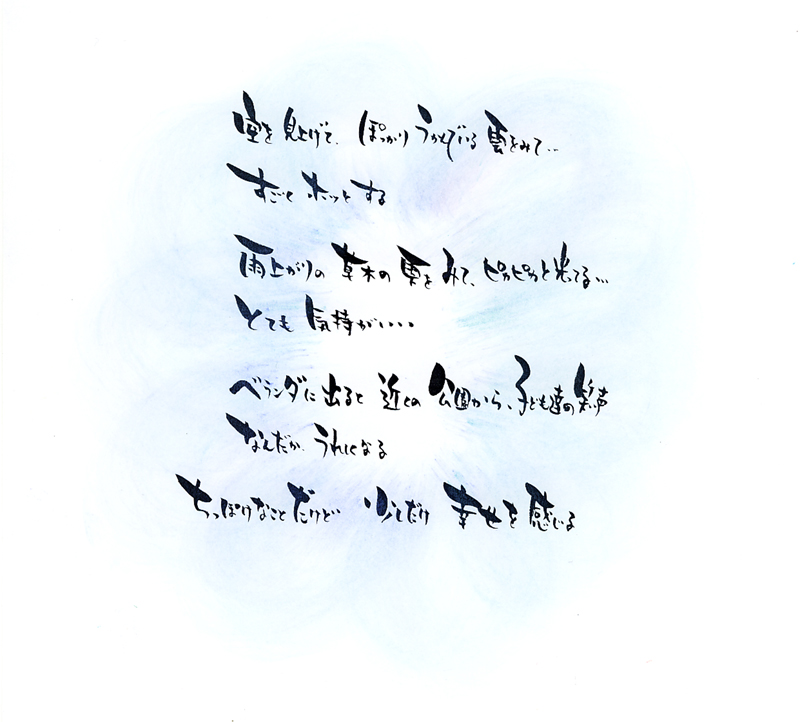 空を見上げて、ぽっかりうかんでいる雲をみて…
すごくホッとする
雨上がりの草木の雫をみて、ピカピカと光ってる…
とても気持がいい…
ベランダに出ると近くの公園から、子ども達の笑声
なんだか、うれしくなる
ちっぽけなことだけど 少しだけ 幸せを感じる